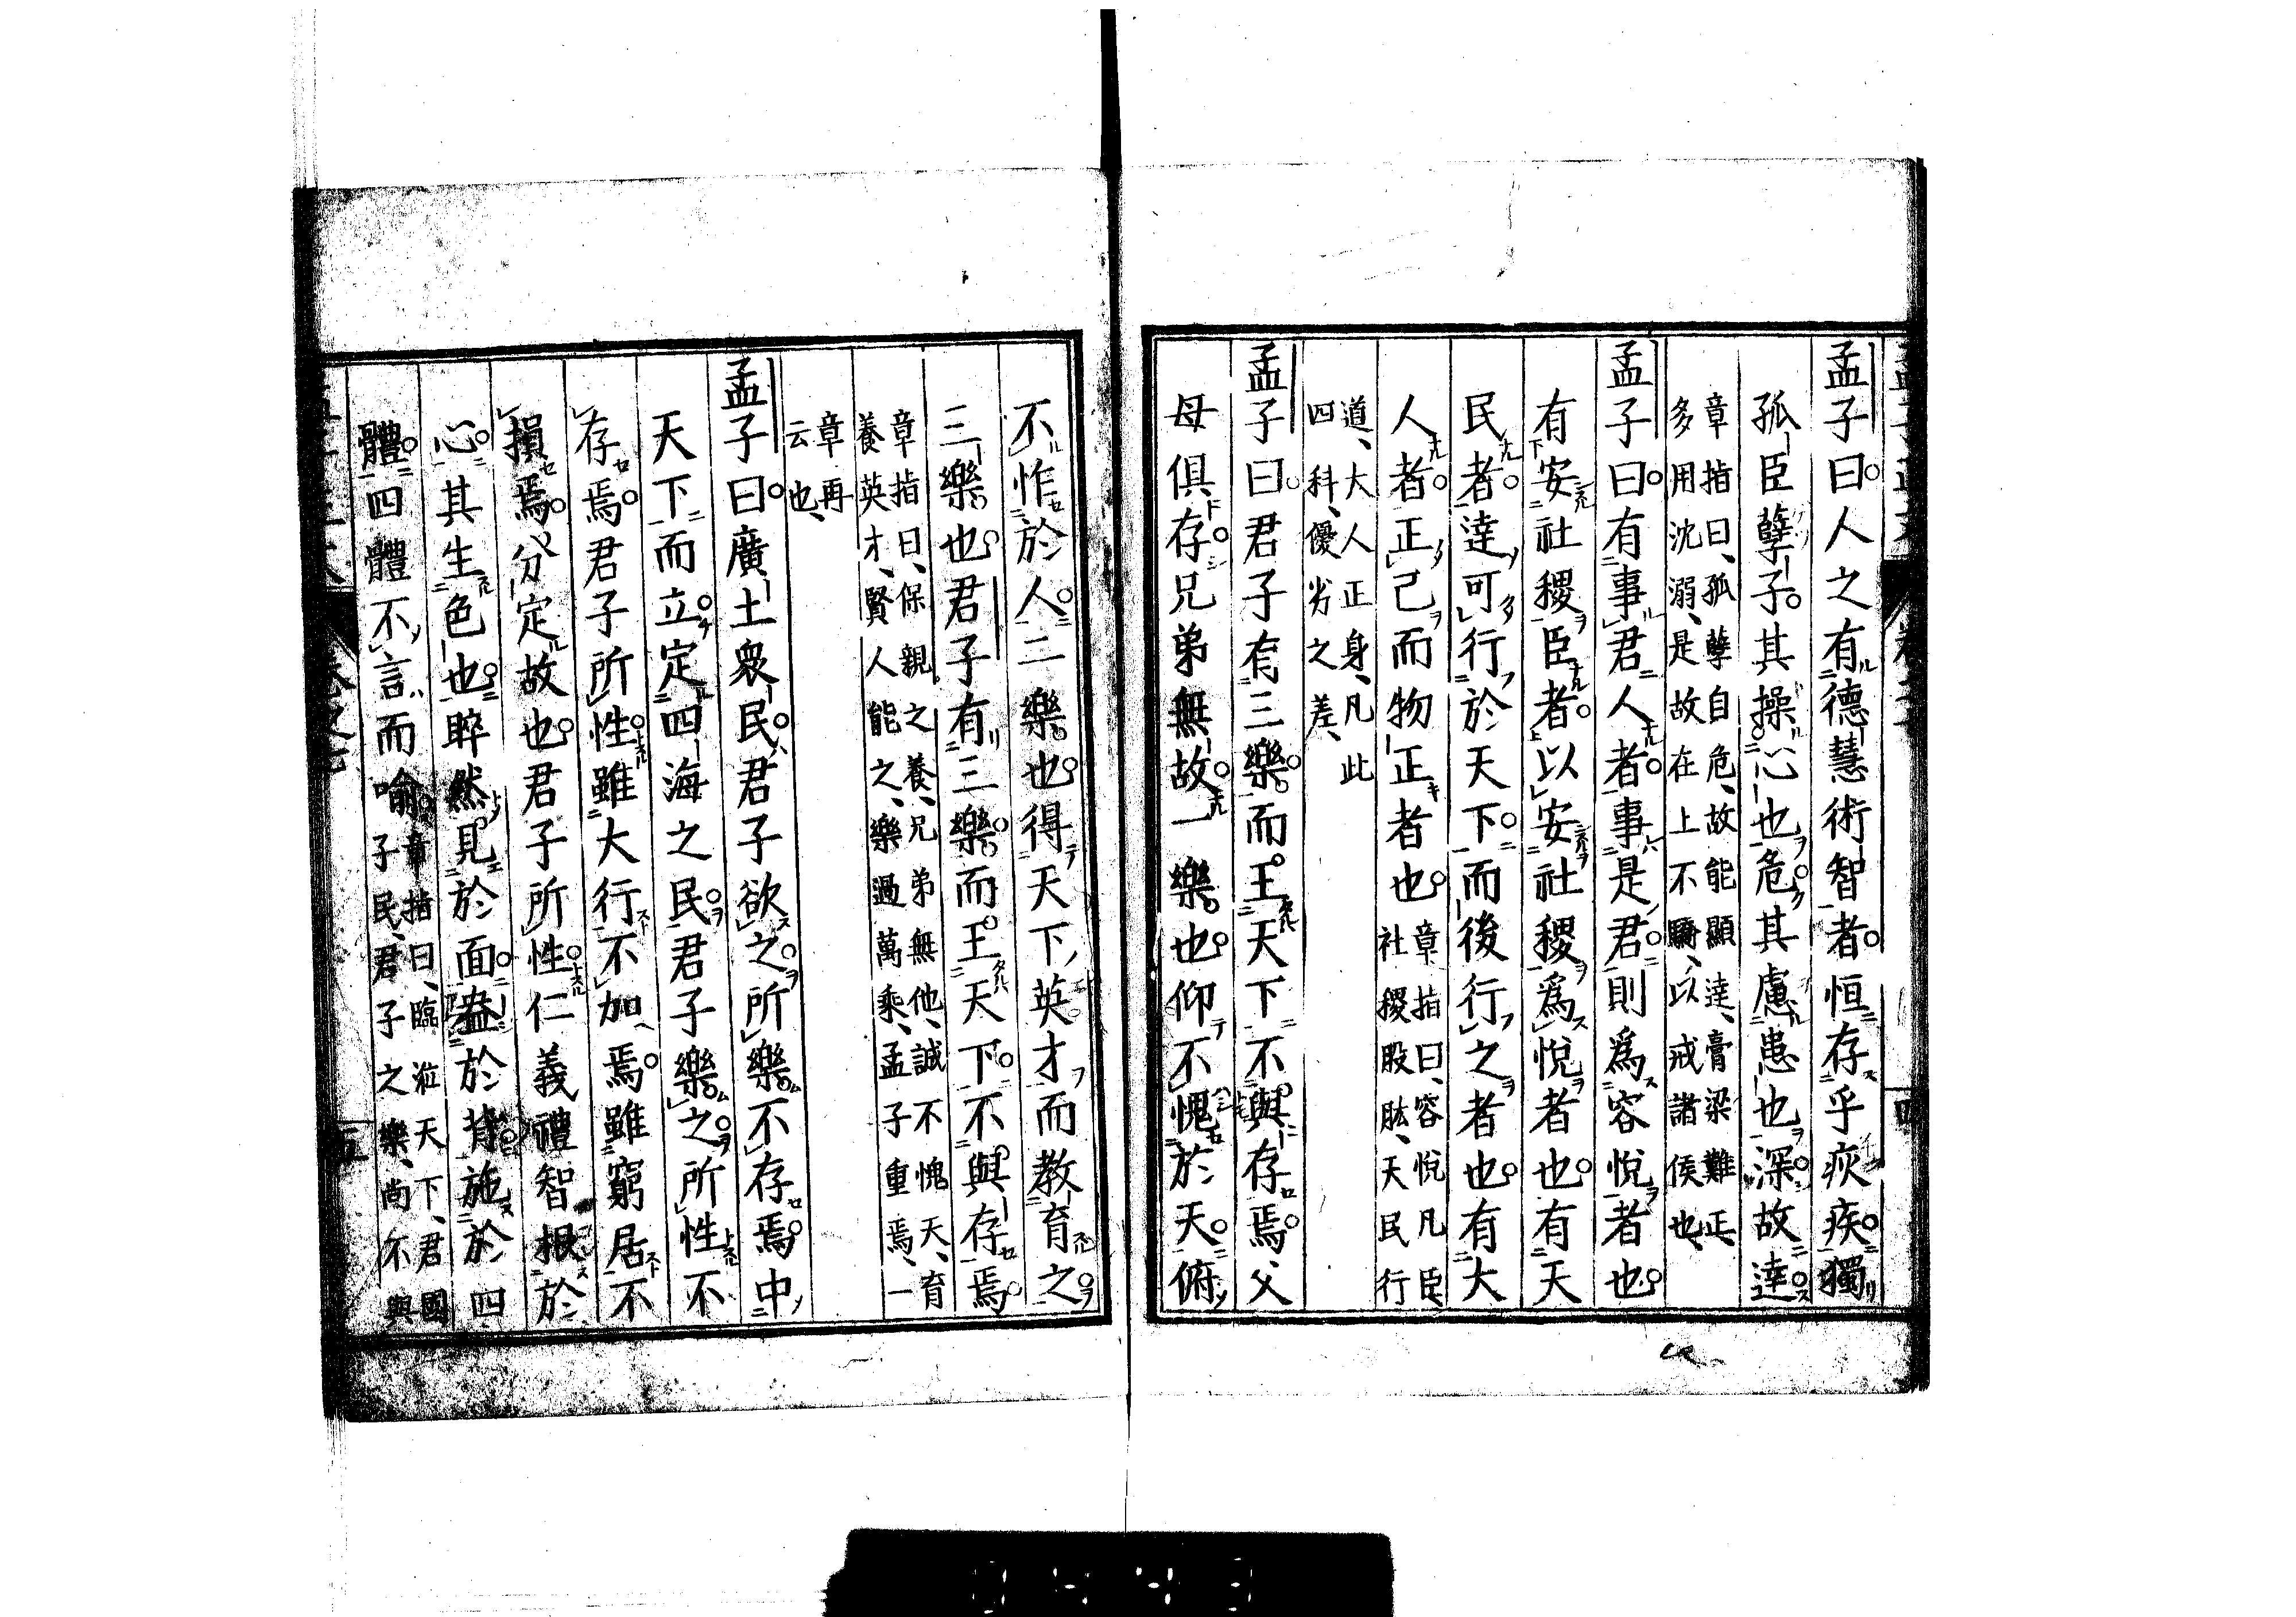 孟子曰人之有德慧術智者恒存乎疢疾獨
孤臣孽子其操心也危其慮患也深故達
章指曰、孤孽自危、故能顯達、膏粱難正、
多用沈溺、是故在上不驕、以戒諸侯也、
孟子曰有事君人者事是君則爲容悅者也
有安社稷臣者以安社稷爲悅者也有天
民者達可行於天下而後行之者也有大
人者正己而物正者也
章指曰、容悅凡臣、
社稷股肱、天民行
道、大人正身、凡此
四科、優劣之差、
孟子曰君子有三樂而王天下不與存焉父
母俱存兄弟無故一樂也仰不愧於天俯
不怍於人二樂也得天下英才而教育之
三樂也君子有三樂而王天下不與存焉
章指曰、保親之養、兄弟無他、誠不愧天、育
養英才、賢人能之、樂過萬乘、孟子重焉、一
章再
云也、
孟子曰廣土衆民君子欲之所樂不存焉中
天下而立定四海之民君子樂之所性不
存焉君子所性雖大行不加焉雖窮居不
損焉分定故也君子所性仁義禮智根於
心其生色也睟然見於面盎於背施於四
體四體不言而喻
章指曰、臨涖天下、君國
子民、君子之樂、尚不與